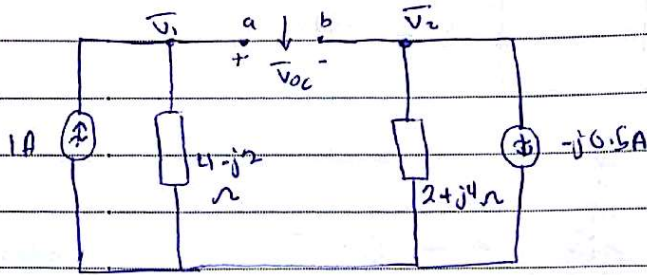 V̅₁ a b V̅₂
+ V̅oc -
1A 4-j2 Ω 2+j4 Ω -j0.5A